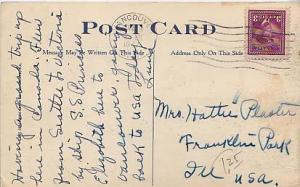 POST CARD
VANCOUVER
Message May be Written On This Side
Address Only On This Side
Having a grand trip up
here in Canada. Flew
from Seattle to Victoria
by ship S.S. Princess
Elizabeth here to
Vancouver going
back to USA today
Mrs. Hattie Plaster
Franklin Park
Ill USA.
125